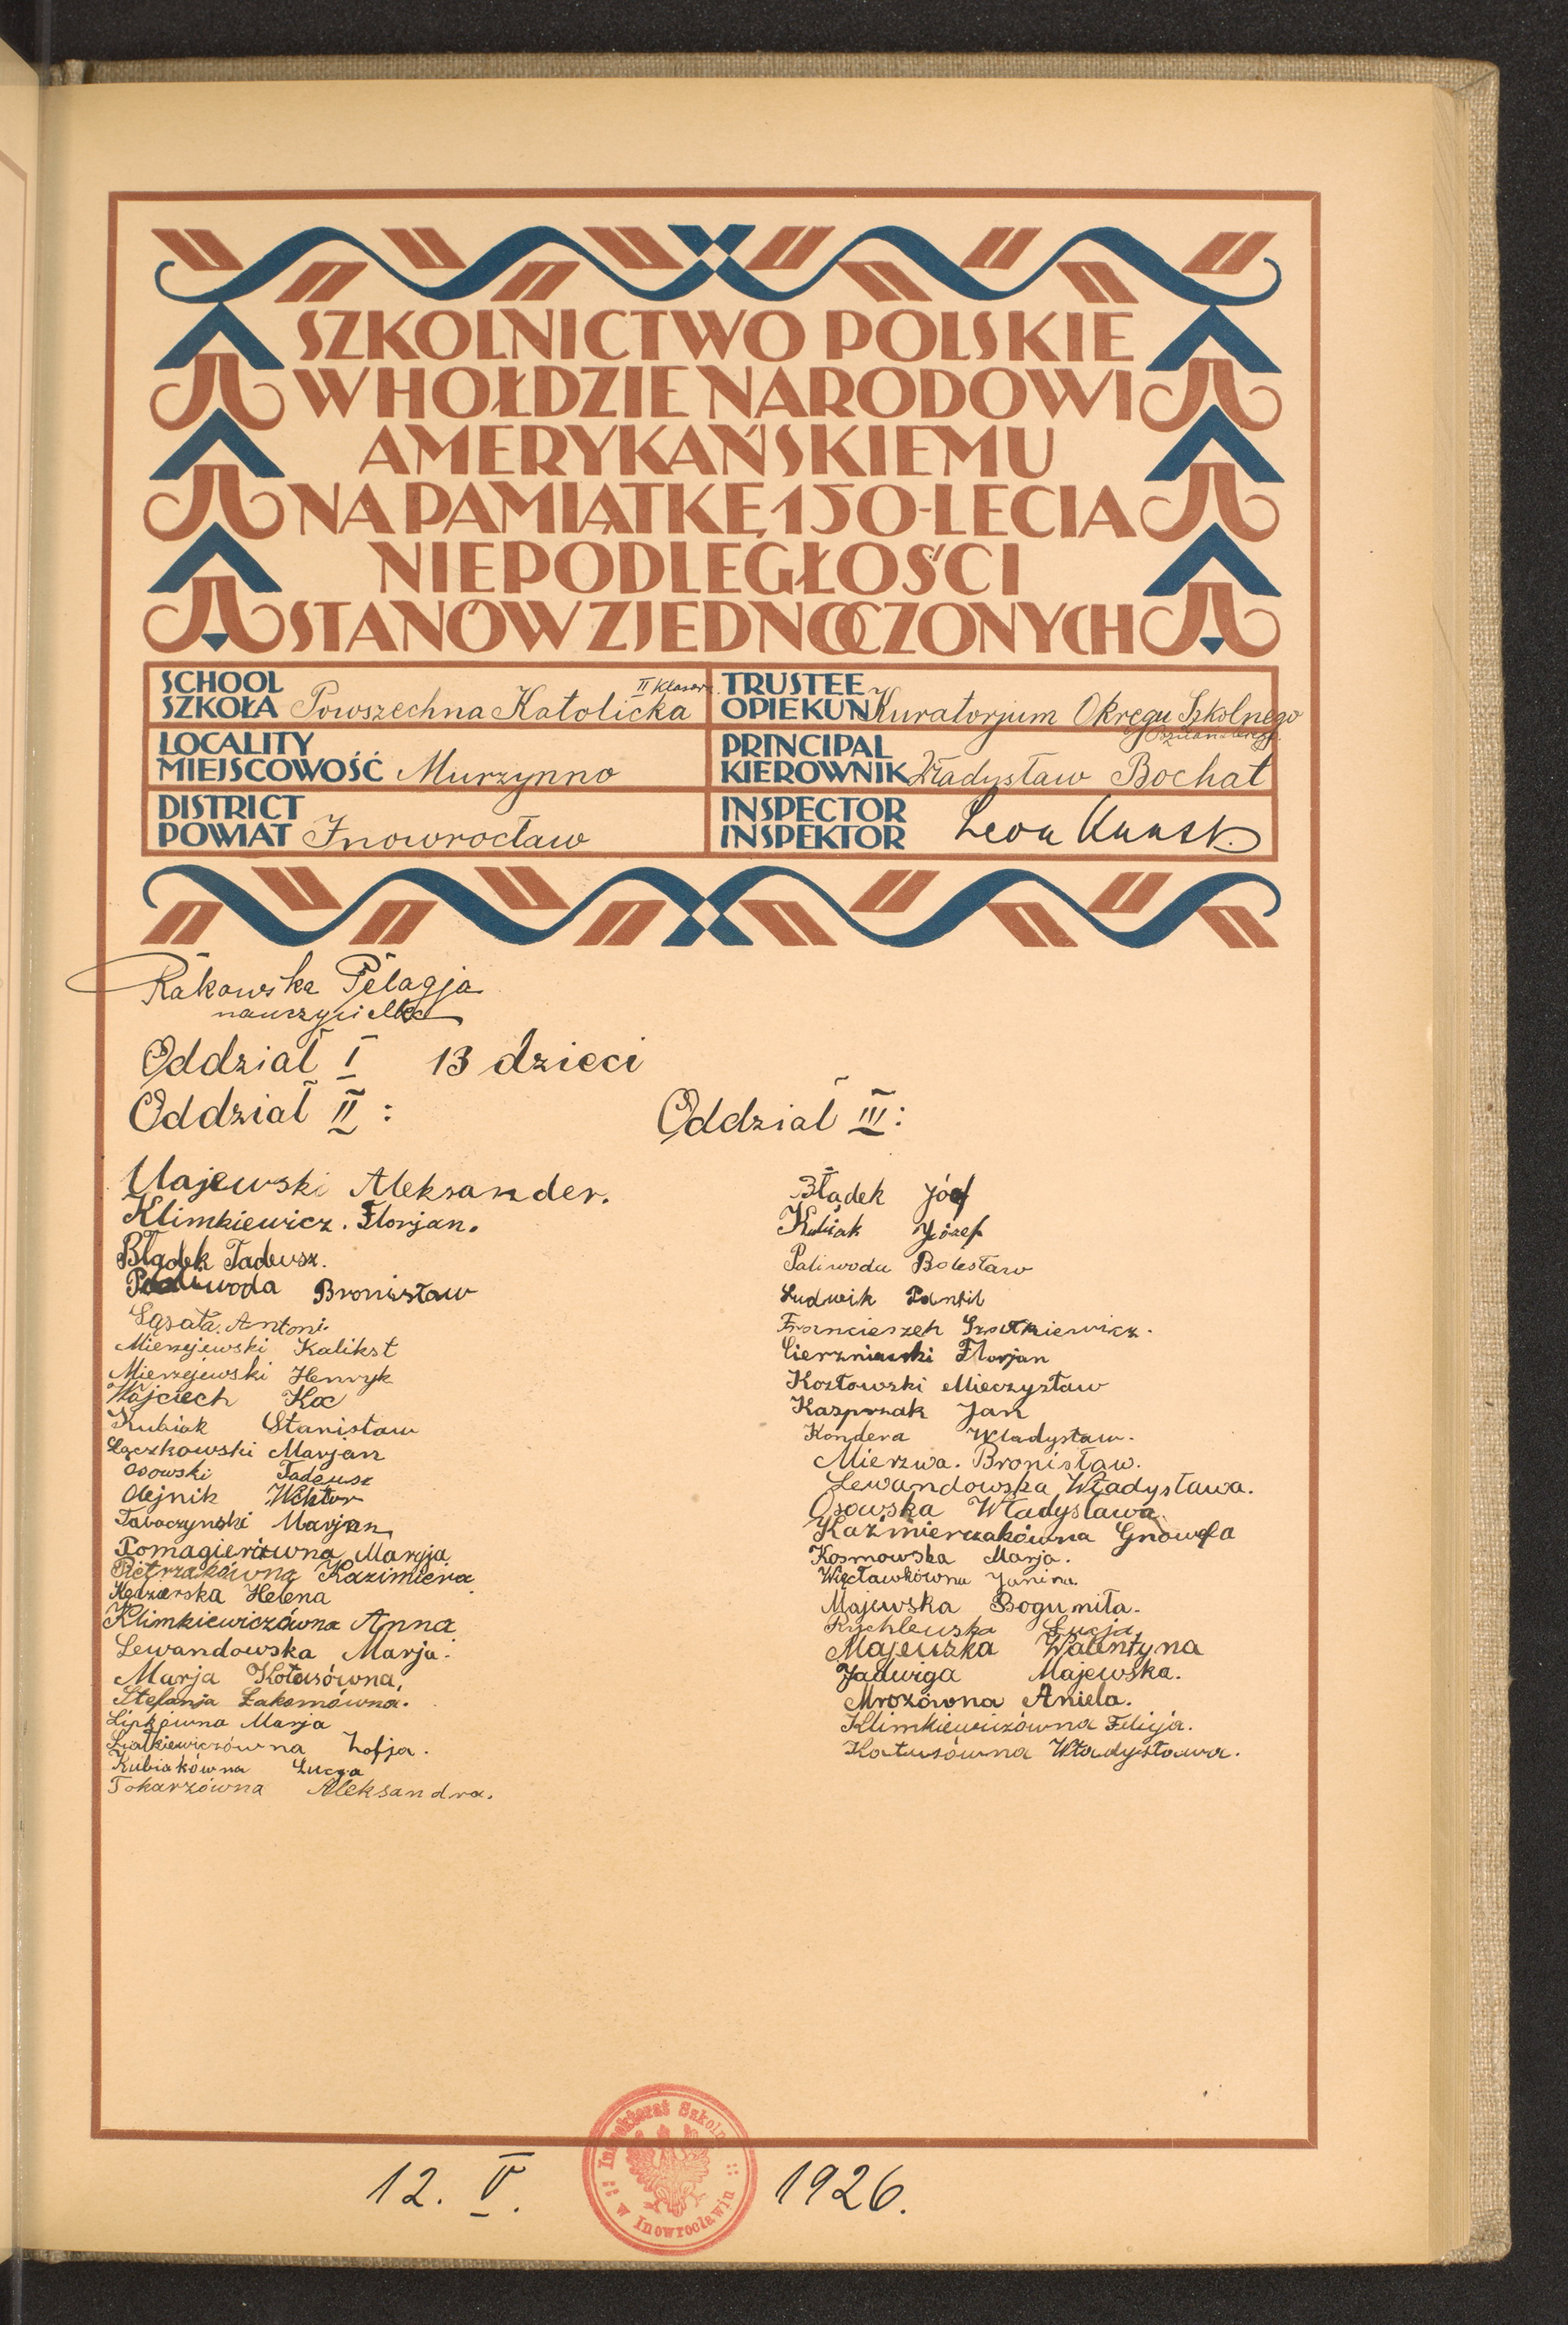 SZKOLNICTWO POLSKIE
W HOŁDZIE NARODOWI
AMERYKAŃSKIEMU
NA PAMIĄTKĘ 150-LECIA
NIEPODLEGŁOŚCI
STANÓW ZJEDNOCZONYCH
SCHOOL
SZKOŁA Powszechna Katolicka II klasowa
TRUSTEE
OPIEKUN Kuratorjum Okręgu Szkolnego
LOCALITY
MIEJSCOWOŚĆ Murzynno
PRINCIPAL
KIEROWNIK Władysław Bochat
DISTRICT
POWIAT Inowrocław
INSPECTOR
INSPEKTOR Leon
Rakowska Pelagja
nauczycielka
Oddział I 13 dzieci
Oddział II:
Majewski Aleksander.
Klimkiewicz. Florjan.
Błądek Tadeusz.
Bronisław
Antoni.
Mierzejewski Kalikst
Mierzejewski Henryk
Wojciech Koc
Kubiak Stanisław
Łączkowski Marjan
Osowski Tadeusz
Olejnik Wiktor
Tabaczyński Marjan
Pomagierówna Maryja
Pietrzakówna Kazimiera
Kędzierska Helena
Klimkiewiczówna Anna
Lewandowska Marja.
Marja Kotusówna,
Stefanja Łakomówna.
Lipkówna Marja
Zofja.
Kubiakówna Łucja
Tokarzówna Aleksandra.
Oddział III:
Błądek Józef
Kubiak Józef
Paliwoda Bolesław
Ludwik
Franciszek
Florjan
Kozłowski Mieczysław
Kasprzak Jan
Kondera Władysław.
Mierzwa. Bronisław.
Lewandowska Władysława.
Osowska Władysława
Kaźmierczakówna
Kosmowska Marja.
Więcławkówna Janina.
Majewska Bogumiła.
Rychlewska Łucja,
Majewska Walentyna
Jadwiga Majewska.
Mrozówna Aniela.
Klimkiewiczówna Felicja.
Kotusówna Władysława.
Inspektorat Szkolny
w Inowrocławiu
12. V. 1926.